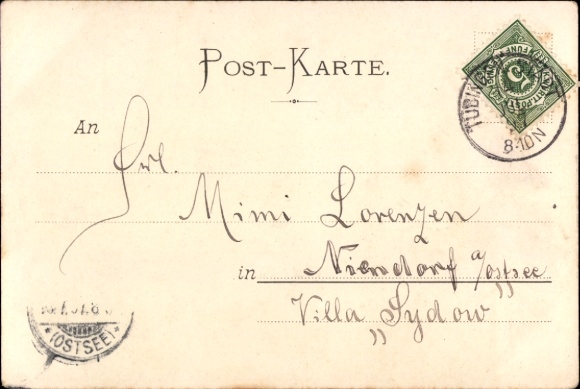 POST-KARTE.
An
Frl.
Mimi Lorenzen
in Niendorf a/ostsee
Villa „Sydow"
TÜBINGEN
8-10N
FÜNF
(OSTSEE)